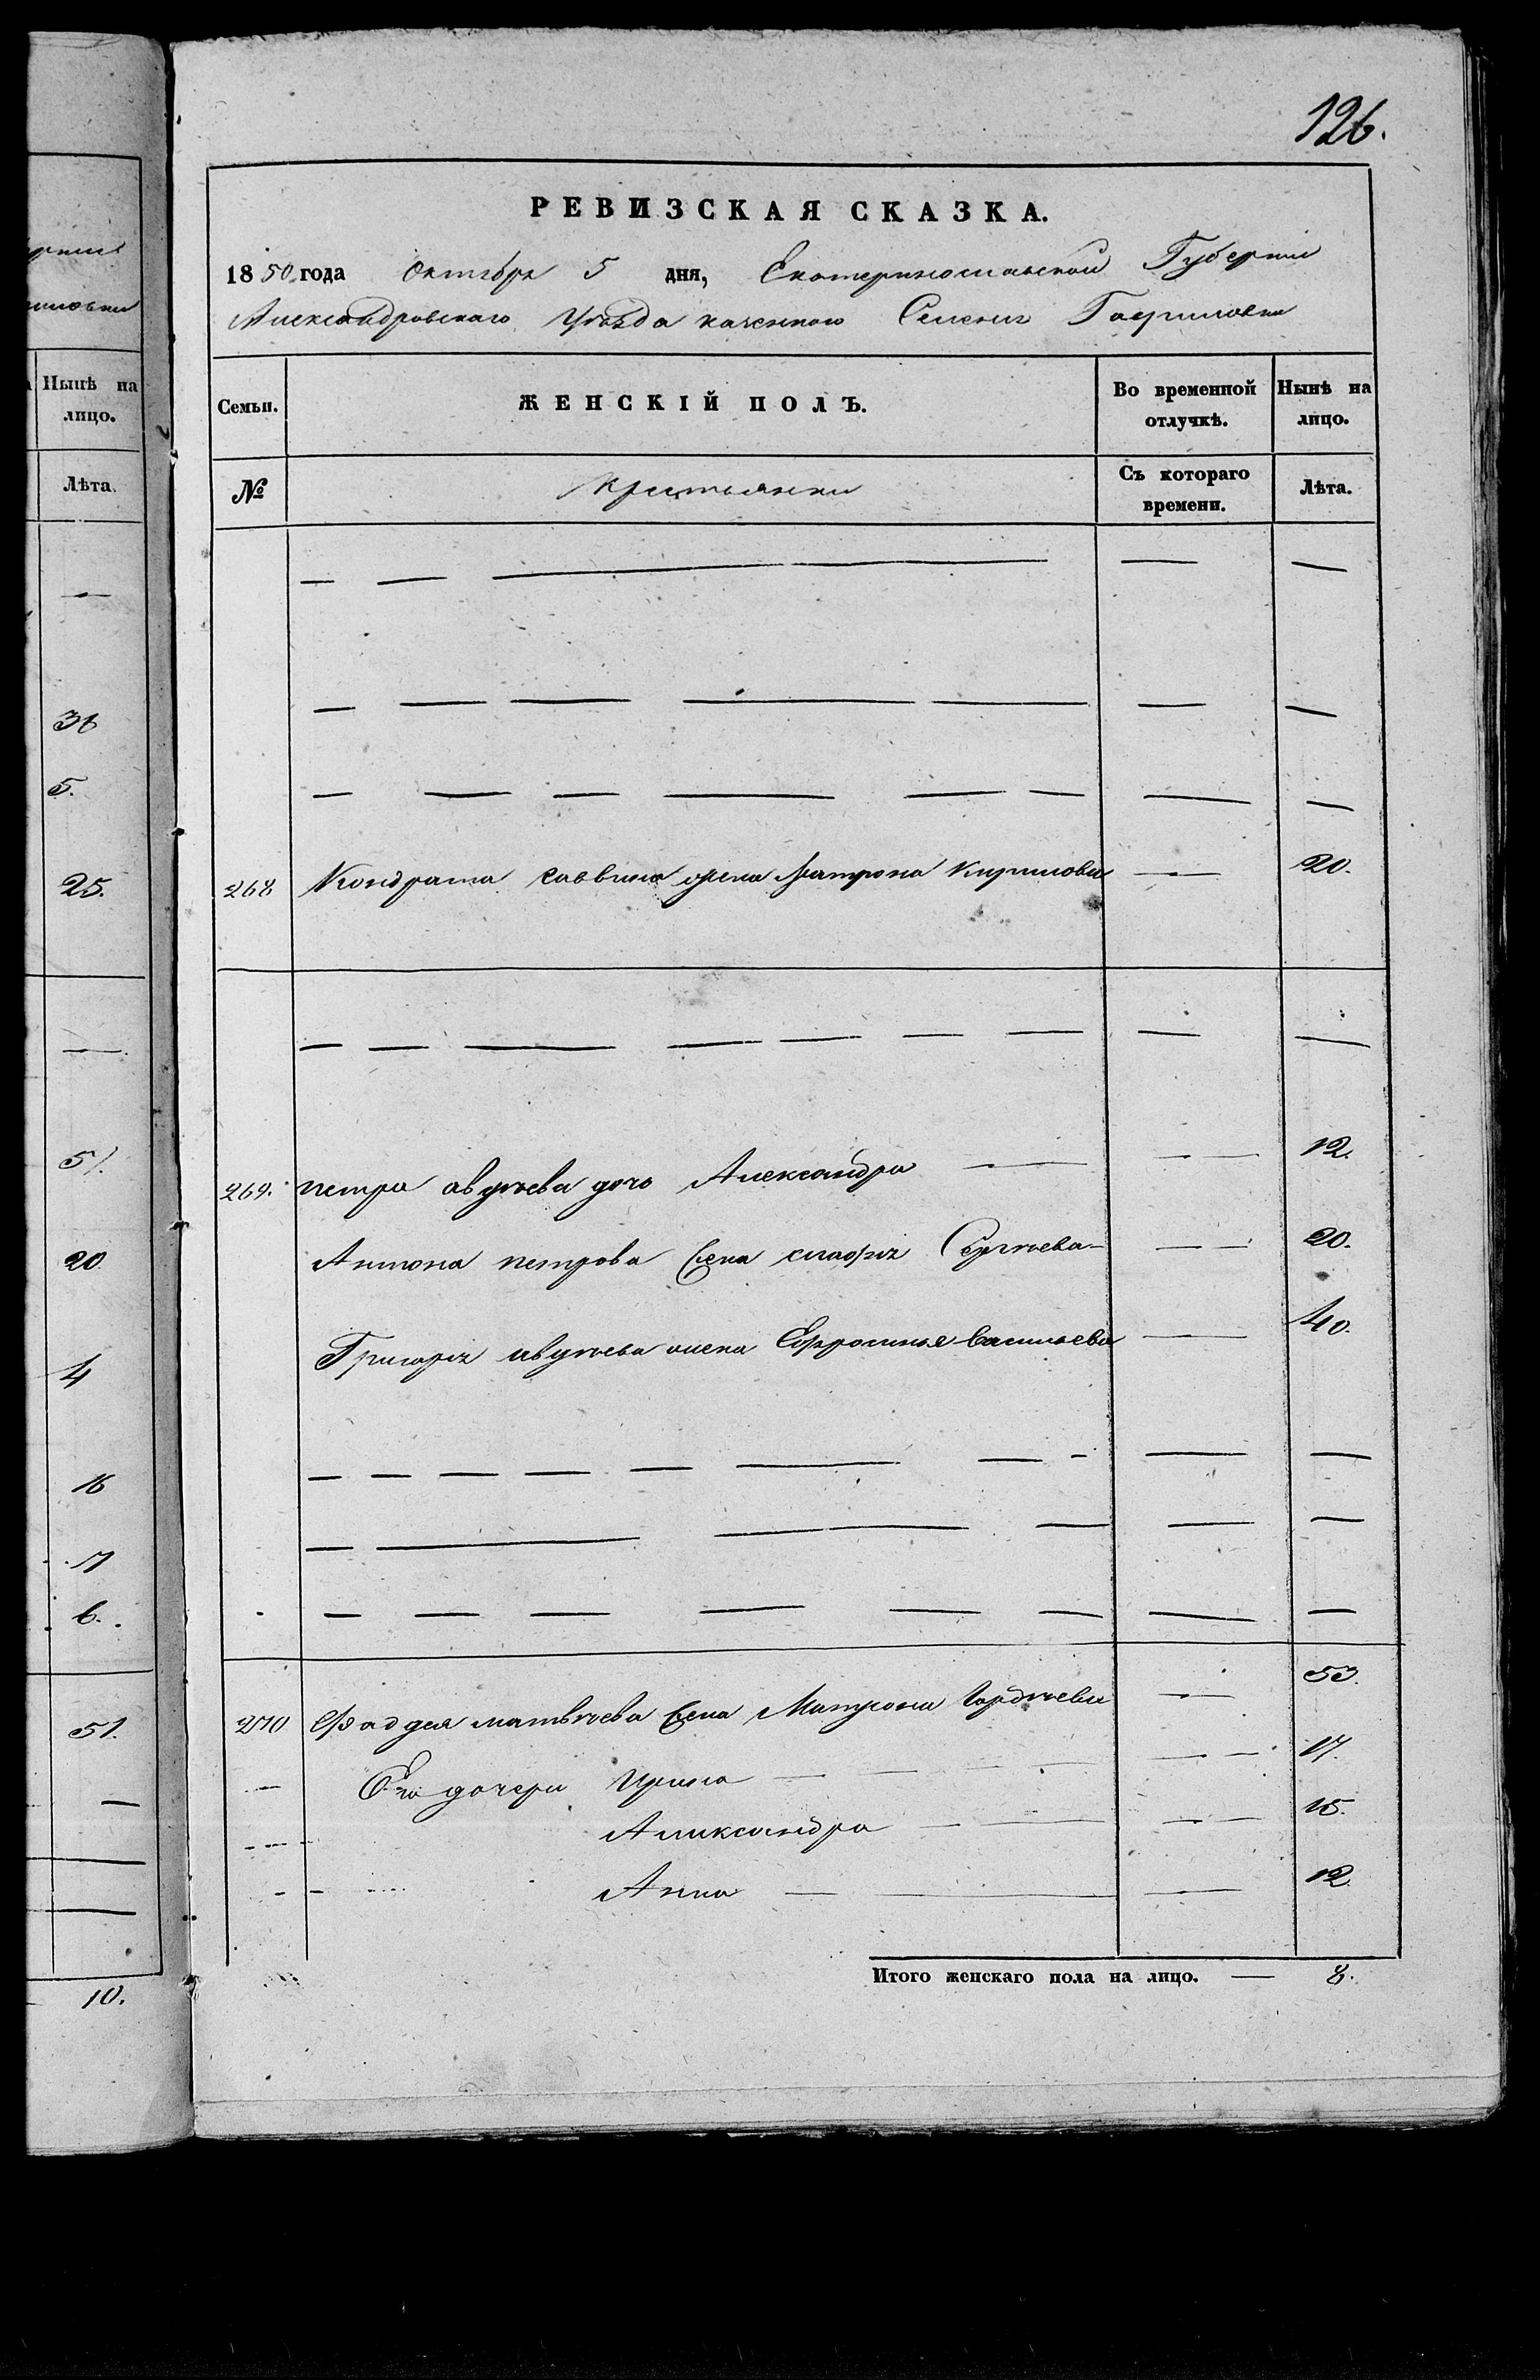 126.
РЕВИЗСКАЯ СКАЗКА.
1850 года Октября 5 дня, Екатеринославской Губернiи
Александровскаго Уѣзда казенного Селенiя Гавриловки
Семьи.
ЖЕНСКІЙ ПОЛЪ.
Во временной отлучкѣ.
Нынѣ на лицо.
№
Крестьянки
Съ котораго времени.
Лѣта.
268 Кондрата Саввина жена Матрона Кирилова — 20.
269. петра авдѣева дочь Александра — 12.
Антона петрова жена Сергѣева — 20.
Григорiя авдѣева жена Ефросинья Васильева — 40.
270 Фаддея матвѣева жена Матрона Гордѣева — 53.
Его дочери Ирина — 17.
Александра — 15.
Анна — 12.
Итого женскаго пола на лицо. — 8.
Нынѣ на лицо.
Лѣта.
36
5.
25.
51.
20
4
16
6.
51.
10.